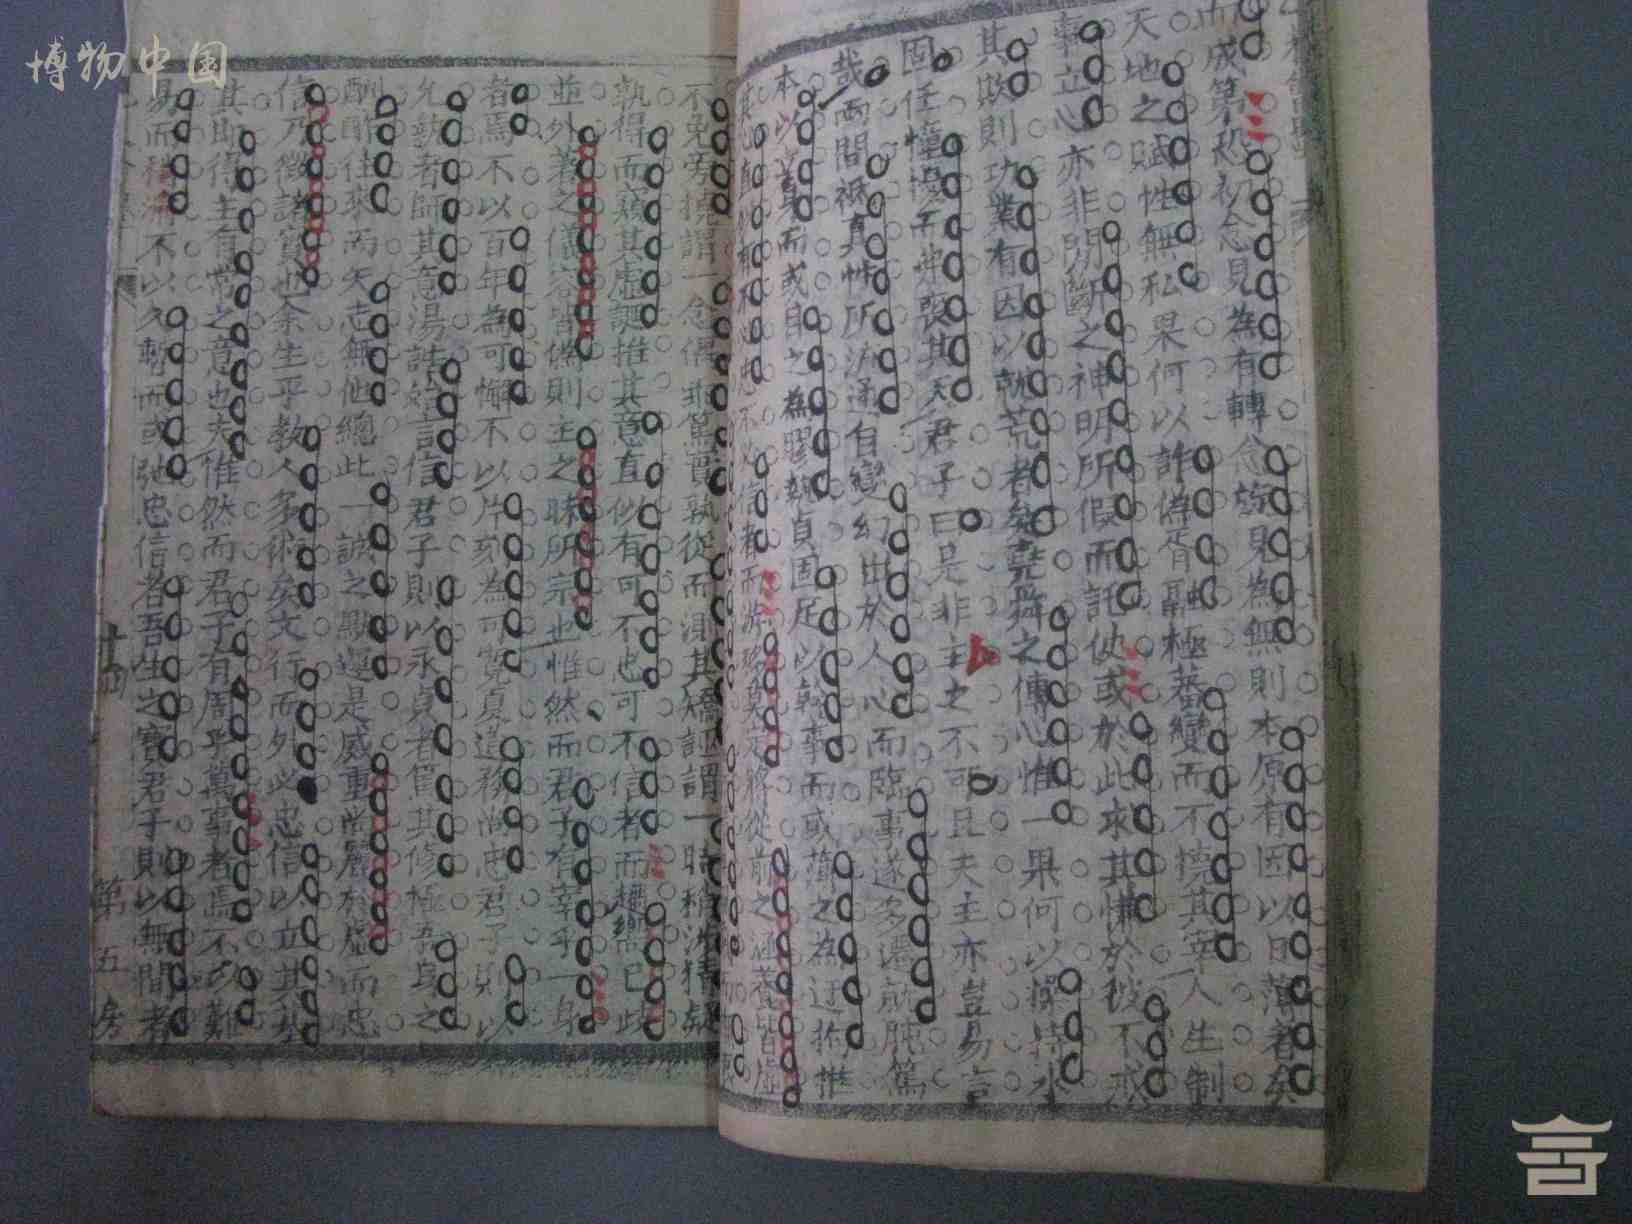 博物中国
而成第恐初念見為有轉念旋見為無則本原有因以日薄者矣
天地之賦性無私果何以詐偽胥融極蕃變而不撓其宰人生制
事立心亦非閒斷之神明所假而託彼或於此求其慊於彼不惑
其敗則功業有因以就荒者矣堯舜之傳心惟一果何以操持永
固任憧擾而弗喪其天君子曰是非主之不可且夫主亦豈易言
哉兩間祇真性所流通自變幻出於人心而臨事遂多遷就肫篤
本以為質而或自之為膠執貞固足以幹事而或薄之為迂拘推
其心直以有不必忠不必信者而游移莫定將從前之涵養皆虛
不免旁撓謂一念偶乖篤實孰從而測其矯誣謂一時稍涉猜疑
孰得而窺其虛誕推其意直似有可不忠可不信者而趨向已歧
並外著之儀容皆偽則主之昧所宗也惟然而君子有宰乎一身
者焉不以百年為可懈不以片刻為可寬夏道務尚忠君子則以
允執者師其意湯誥經言信君子則以永貞者篤其修極吾身之
酬酢往來而矢志無他總此一誠之點運是威重尚麗於虛而忠
信乃徵諸實也余生平教人多術矣文行而外此忠信以立其基
其即得主有常之意也夫惟然而君子有周乎萬事者焉不以難
易而稍渝不以久暫而或弛忠信者吾生之寶君子則以無間者
十四
第五房